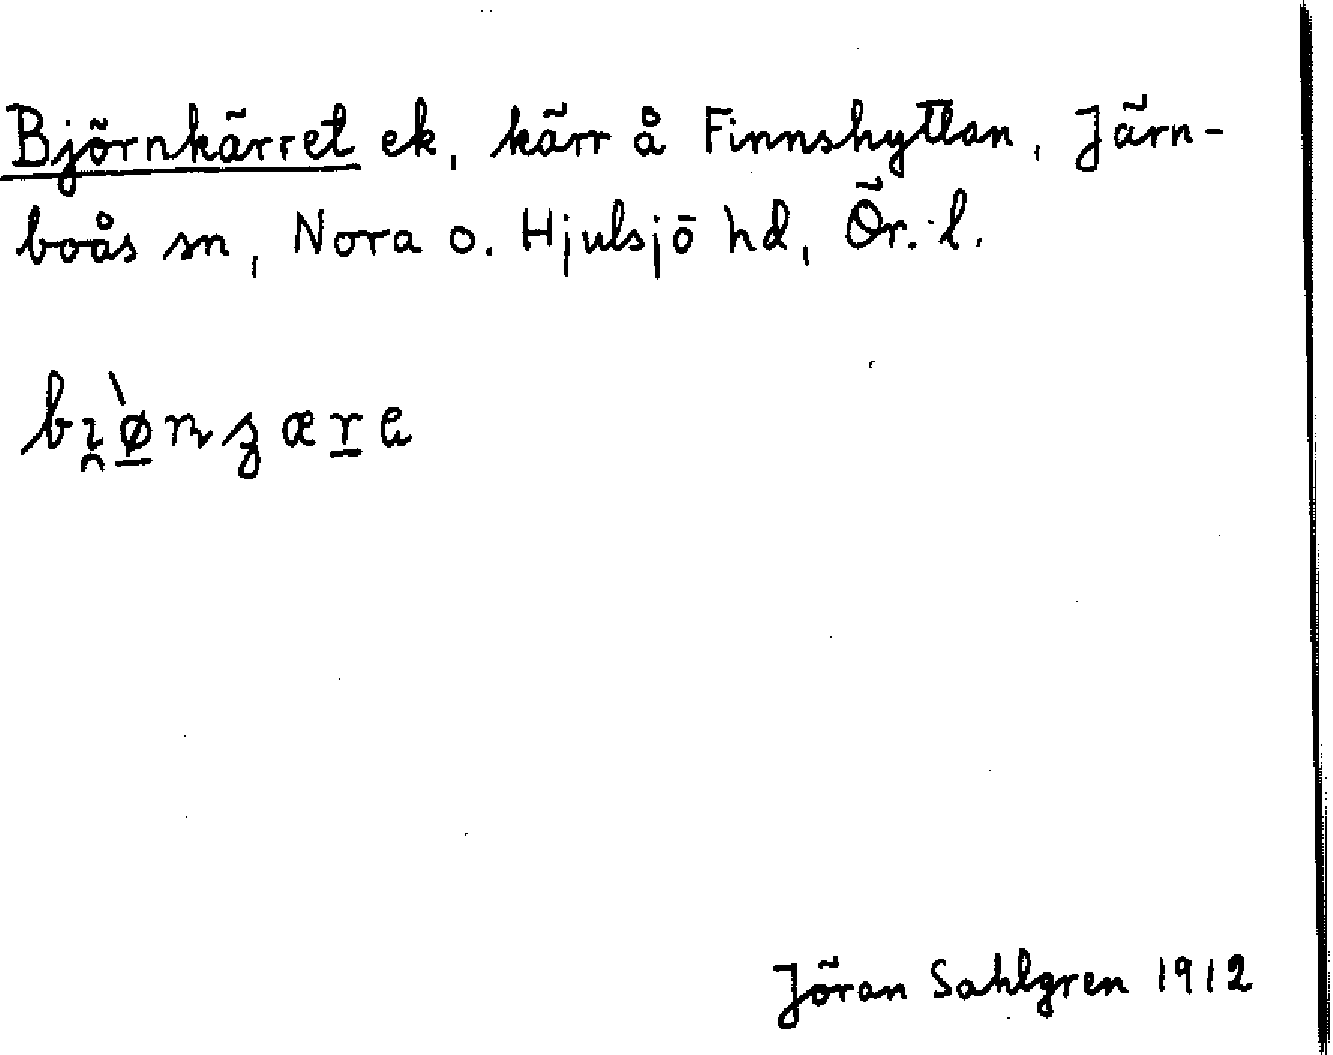 Björnkärret ek, kärr å Finnshyttan, Järn-
boås sn, Nora o. Hjulsjö hd, Ör. l.
Jöran Sahlgren 1912